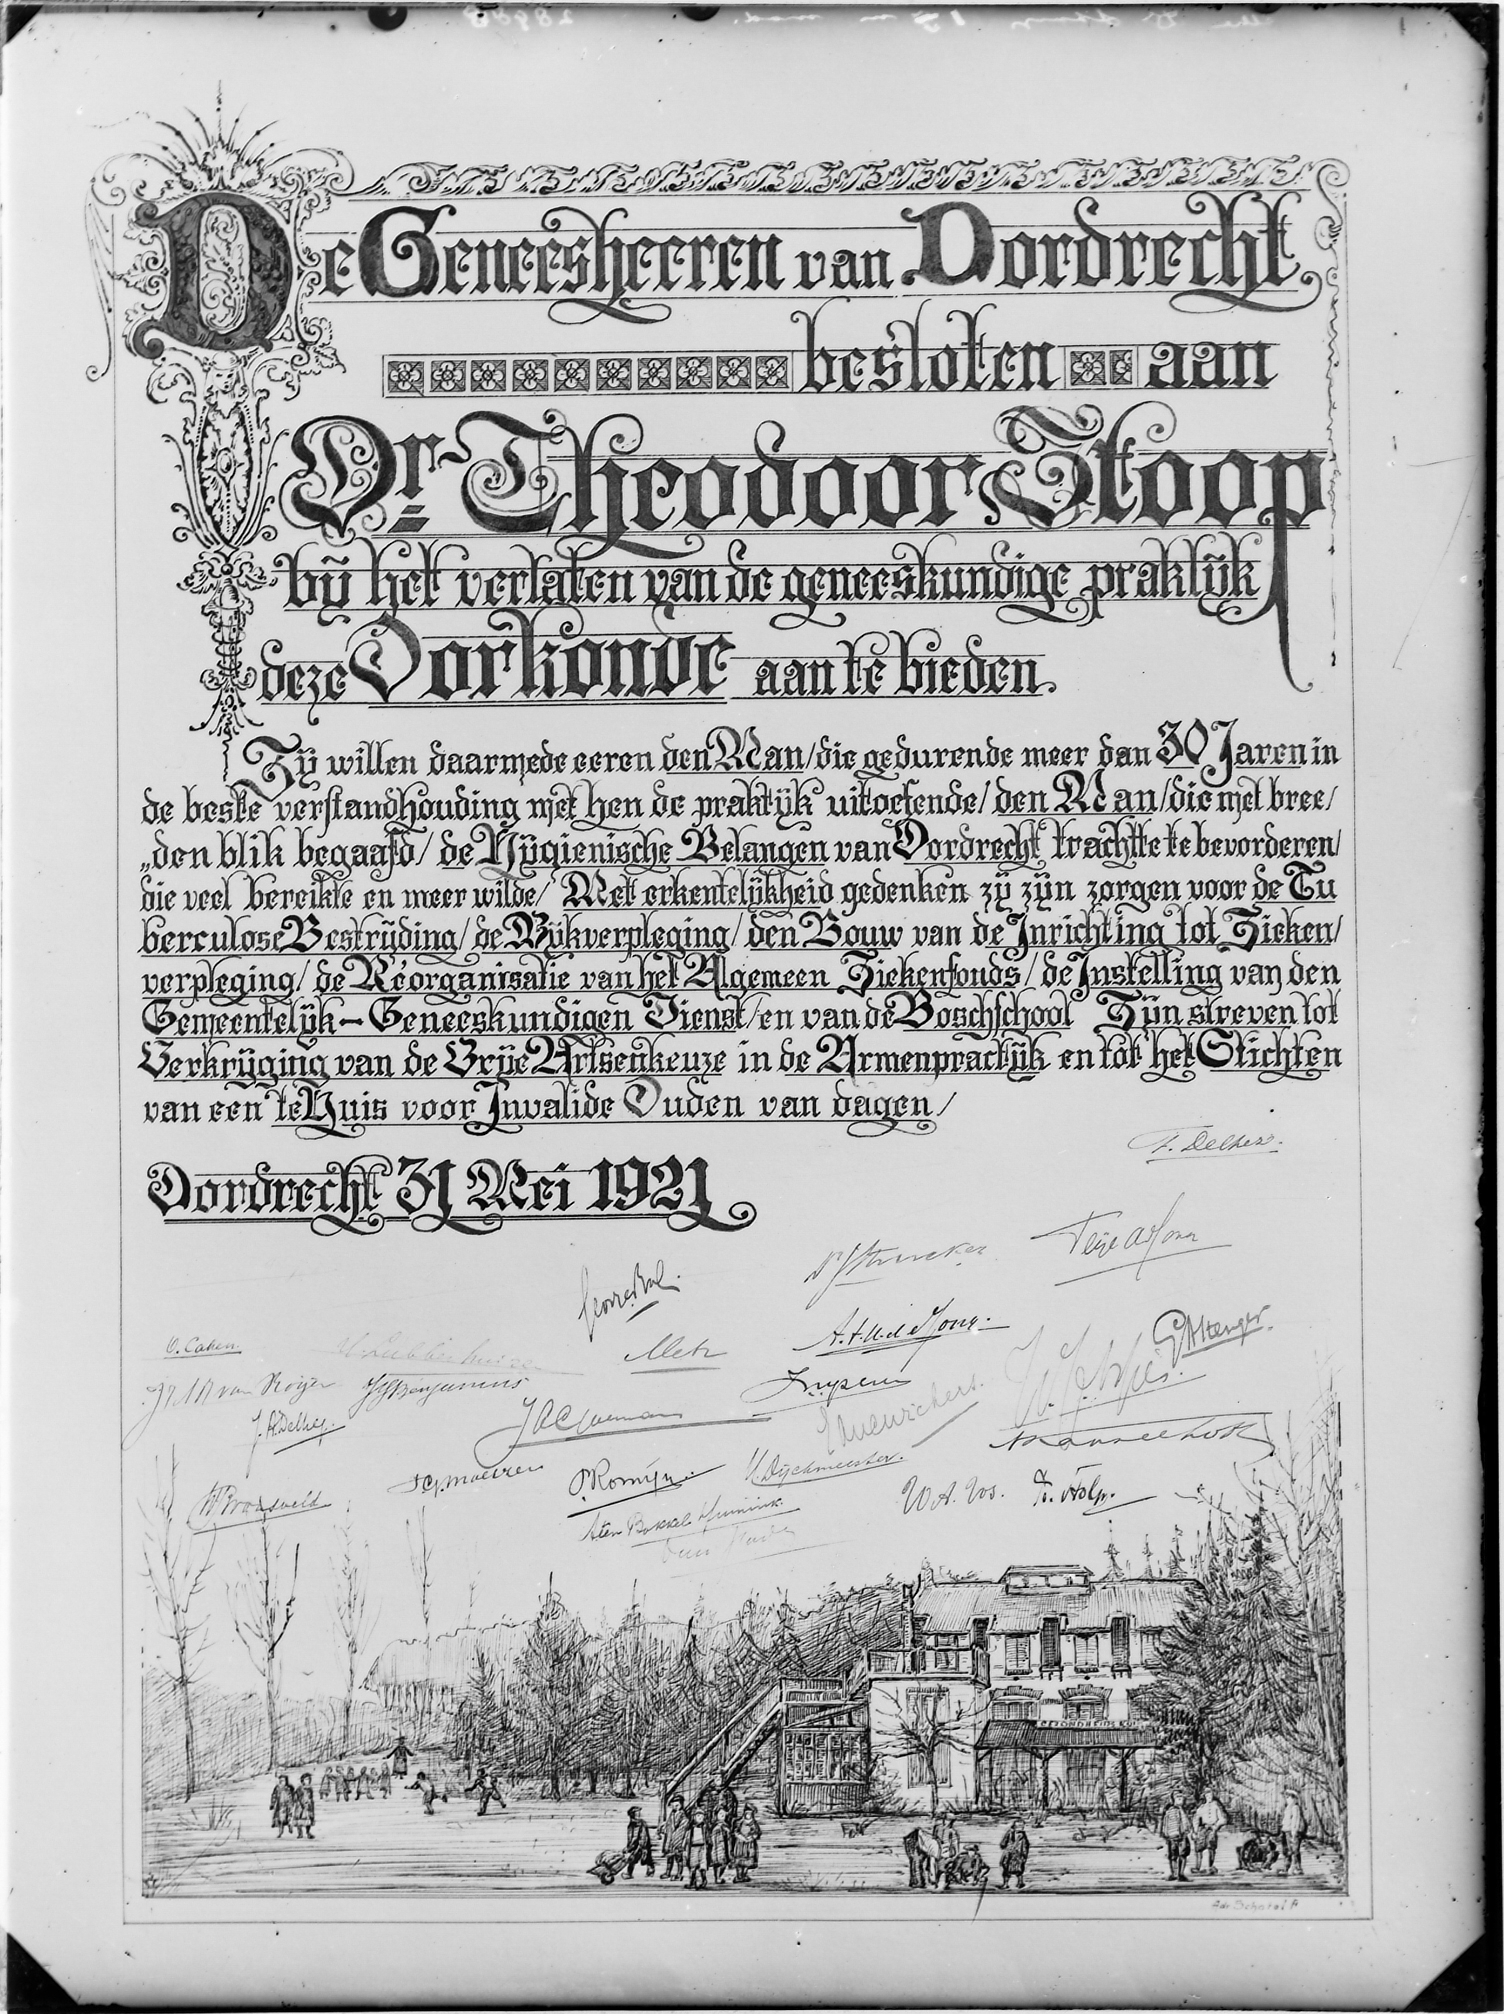 De Geneesheeren van Dordrecht
besloten aan
Dr Theodoor Stoop
bij het verlaten van de geneeskundige praktijk
deze Oorkonde aan te bieden.
Zij willen daarmede eeren den Man/die gedurende meer dan 30 Jaren in
de beste verstandhouding met hen de praktijk uitoefende/den Man/die met bree/
„den blik begaafd/de Hygienische Belangen van Dordrecht trachtte te bevorderen/
die veel bereikte en meer wilde/ Met erkentelijkheid gedenken zij zijn zorgen voor de Tu
berculose Bestrijding/de Wijkverpleging/den Bouw van de Inrichting tot Zieken/
verpleging/de Réorganisatie van het Algemeen Ziekenfonds/de Instelling van den
Gemeentelijk-Geneeskundigen Dienst/en van de Boschschool Zijn streven tot
Verkrijging van de Vrije Artsenkeuze in de Armenpractijk en tot het Stichten
van een teHuis voor Invalide Ouden van dagen/
F. Delhez.
Dordrecht 31 Mei 1921
O. Cahen
Metz
A.A.M. de Jong.
J.A. Delhez
P. Romijn
H. Dijckmeester.
W.A. Vos.
A. ten Bokkel Huinink